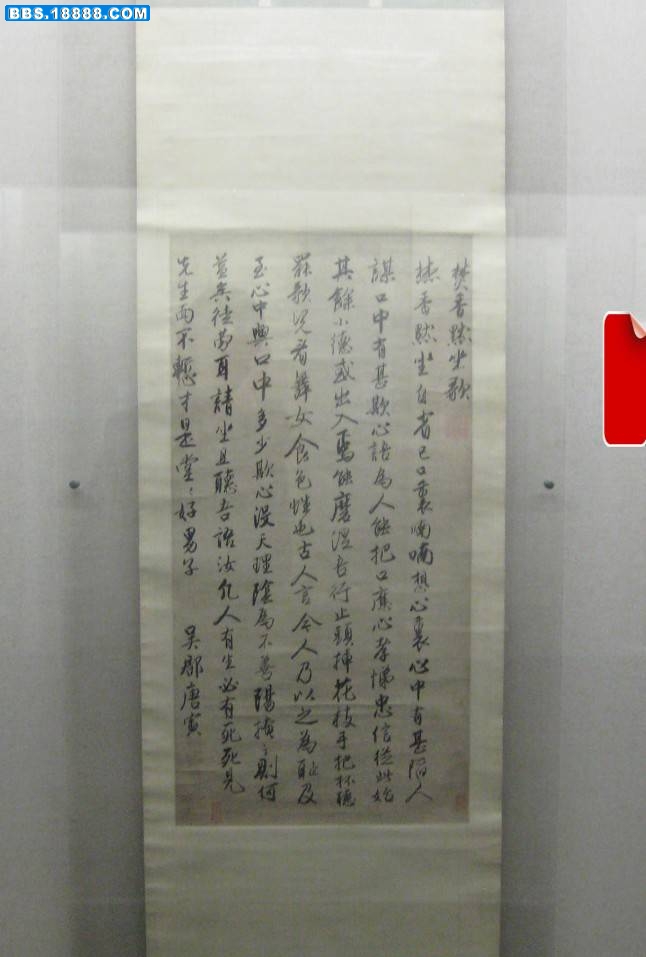 BBS.18888.COM
焚香默坐歌
焚香默坐自省己口裏喃喃想心裏心中有甚陷人
謀口中有甚欺心語為人能把口應心孝悌忠信從此始
其餘小德或出入焉能磨涅吾行止頭插花枝手把杯聽
罷歌兒看舞女食色性也古人言今人乃以之為恥及
至心中與口中多少欺心沒天理陰為不善陽掩之則何
益矣徒勞耳請坐且聽吾語汝凡人有生必有死死見
先生面不慙才是堂々好男子 吳郡唐寅